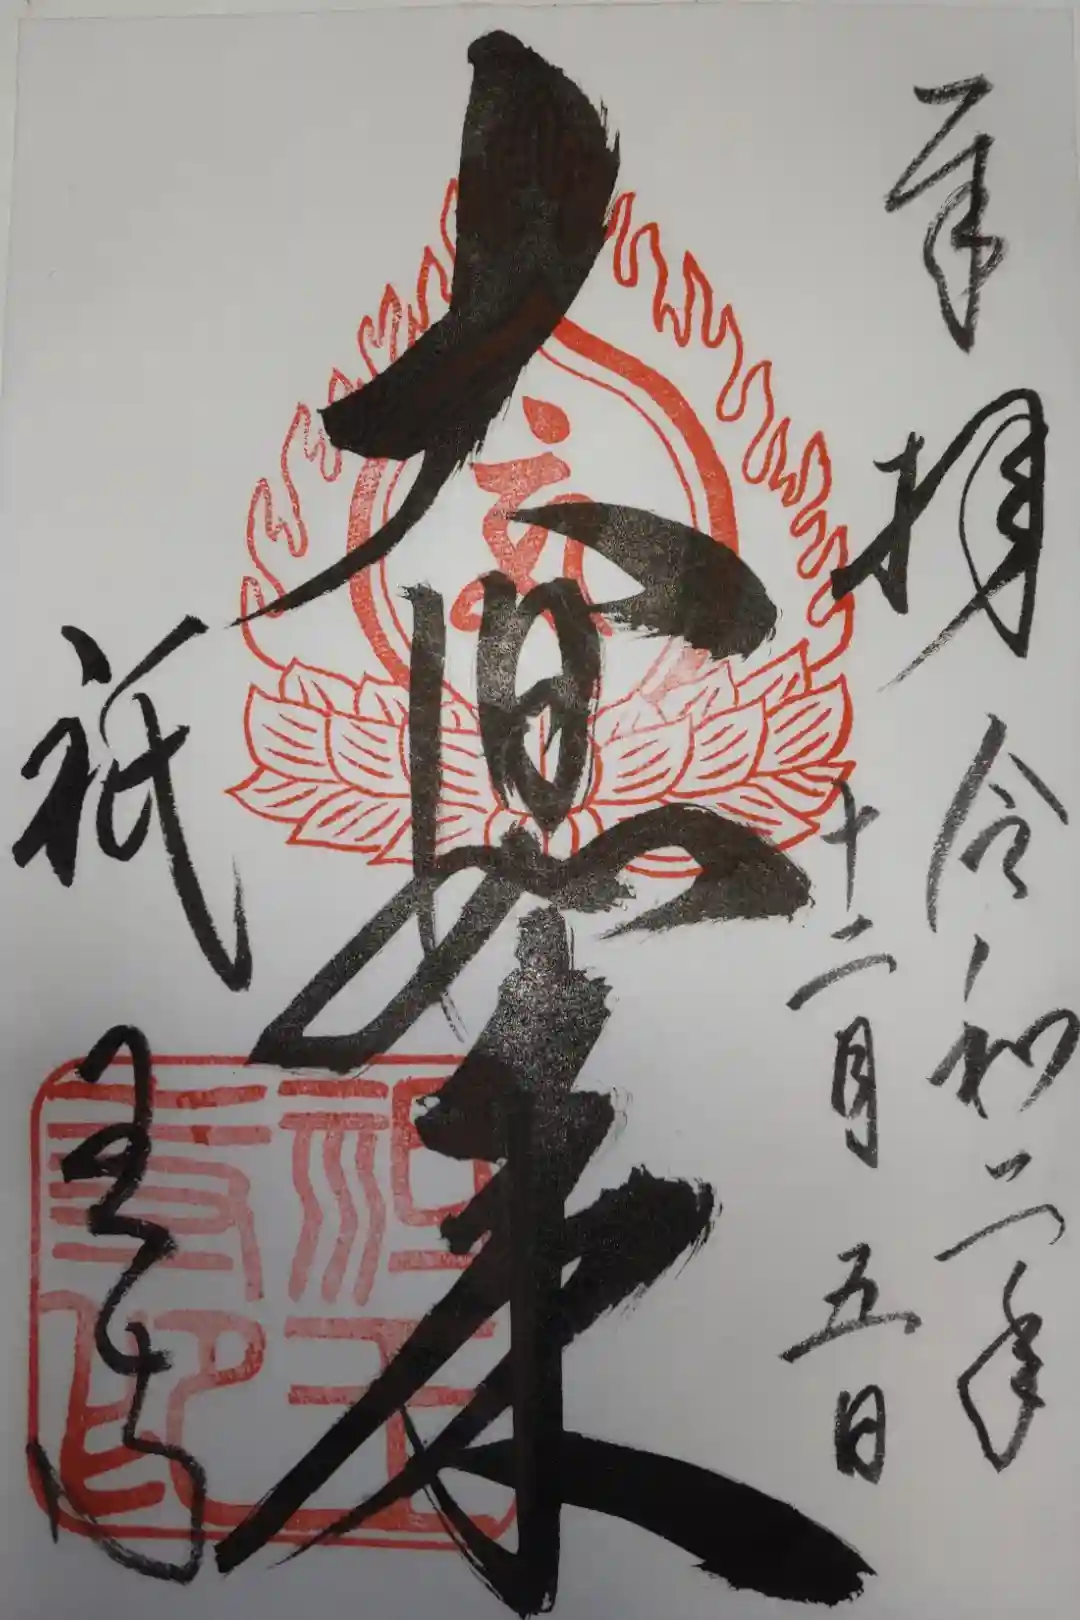 奉拝 令和二年
十二月五日
大日如来
祇王寺
祇王
寺印